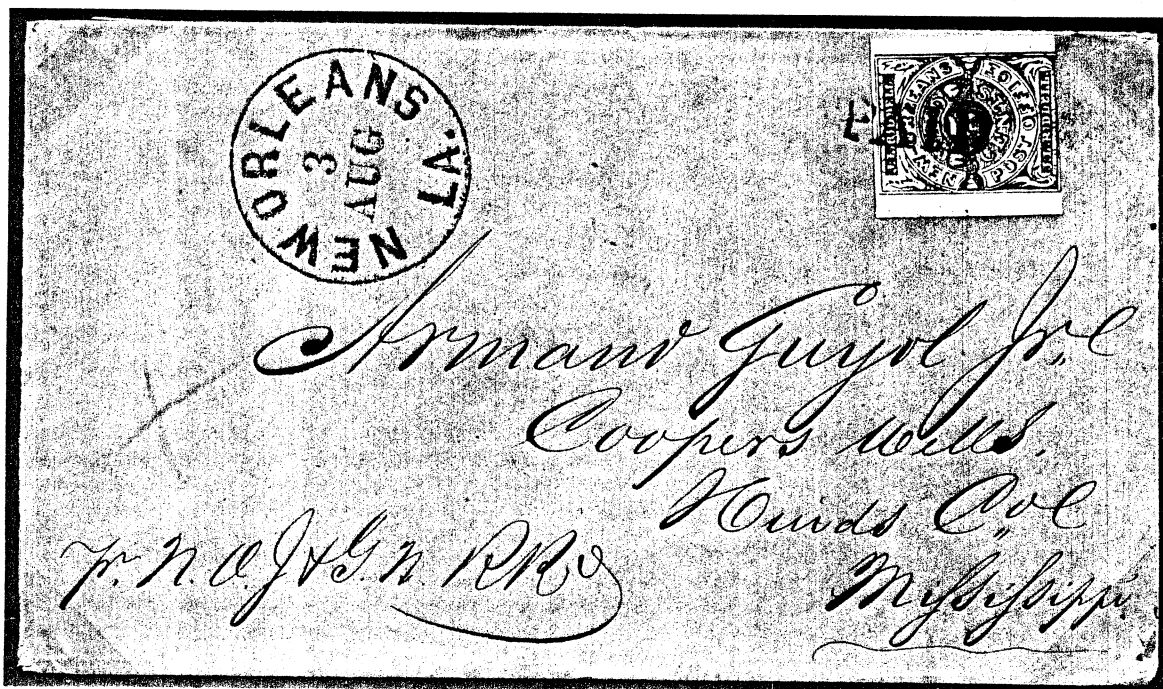 NEW ORLEANS LA.
3
AUG
NEW ORLEANS POST OFFICE
J.L. RIDDELL
CENTS
Armand Guyol Jr.
Coopers Wells.
Hinds Co.
Mississippi.
pr. N. O. J & G. N. RRd